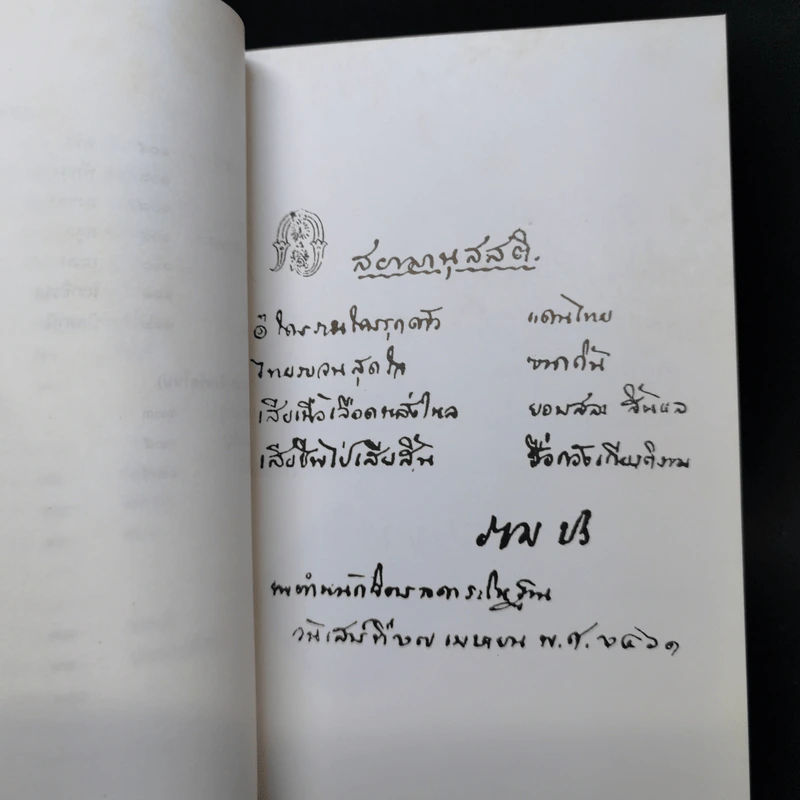 สยามานุสสติ.
๏ ใครรานใครรุกด้าว แดนไทย
ไทยรบจนสุดใจ ขาดดิ้น
เสียเนื้อเลือดหลั่งไหล ยอมสละ สิ้นแล
เสียชีพไป่เสียสิ้น ชื่อก้องเกียรติงาม
ราม ปร
พระตำหนักจิตรลดารโหฐาน
วันเสาร์ที่ ๒๗ เมษายน พ.ศ. ๒๔๖๑